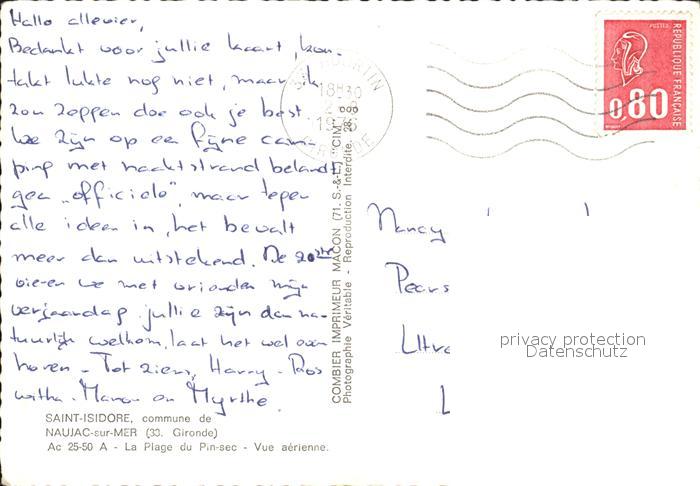 Hallo allevier,
Bedankt voor jullie kaart, kon-
takt lukte nog niet, maar ik
zou zeggen doe ook je best.
We zijn op een fijne cam-
ping met naaktstrand beland
geen „officiele”, maar tegen
alle ideen in, het bevalt
meer dan uitstekend. De 20ste
vieren we met vrienden mijn
verjaardag jullie zijn dan na-
tuurlijk welkom, laat het wel even
horen. Tot ziens, Harry - Ros
witha - Manon en Myrthe.
SAINT-ISIDORE, commune de
NAUJAC-sur-MER (33. Gironde)
Ac 25-50 A - La Plage du Pin-sec - Vue aérienne.
COMBIER IMPRIMEUR MACON (71. S.-&-L.) "CIM"
Photographie Véritable - Reproduction Interdite.
HOURTIN
18H30
1976
GIRONDE
POSTES
REPUBLIQUE FRANÇAISE
0,80
Nancy
Pears
Utre
L
privacy protection
Datenschutz